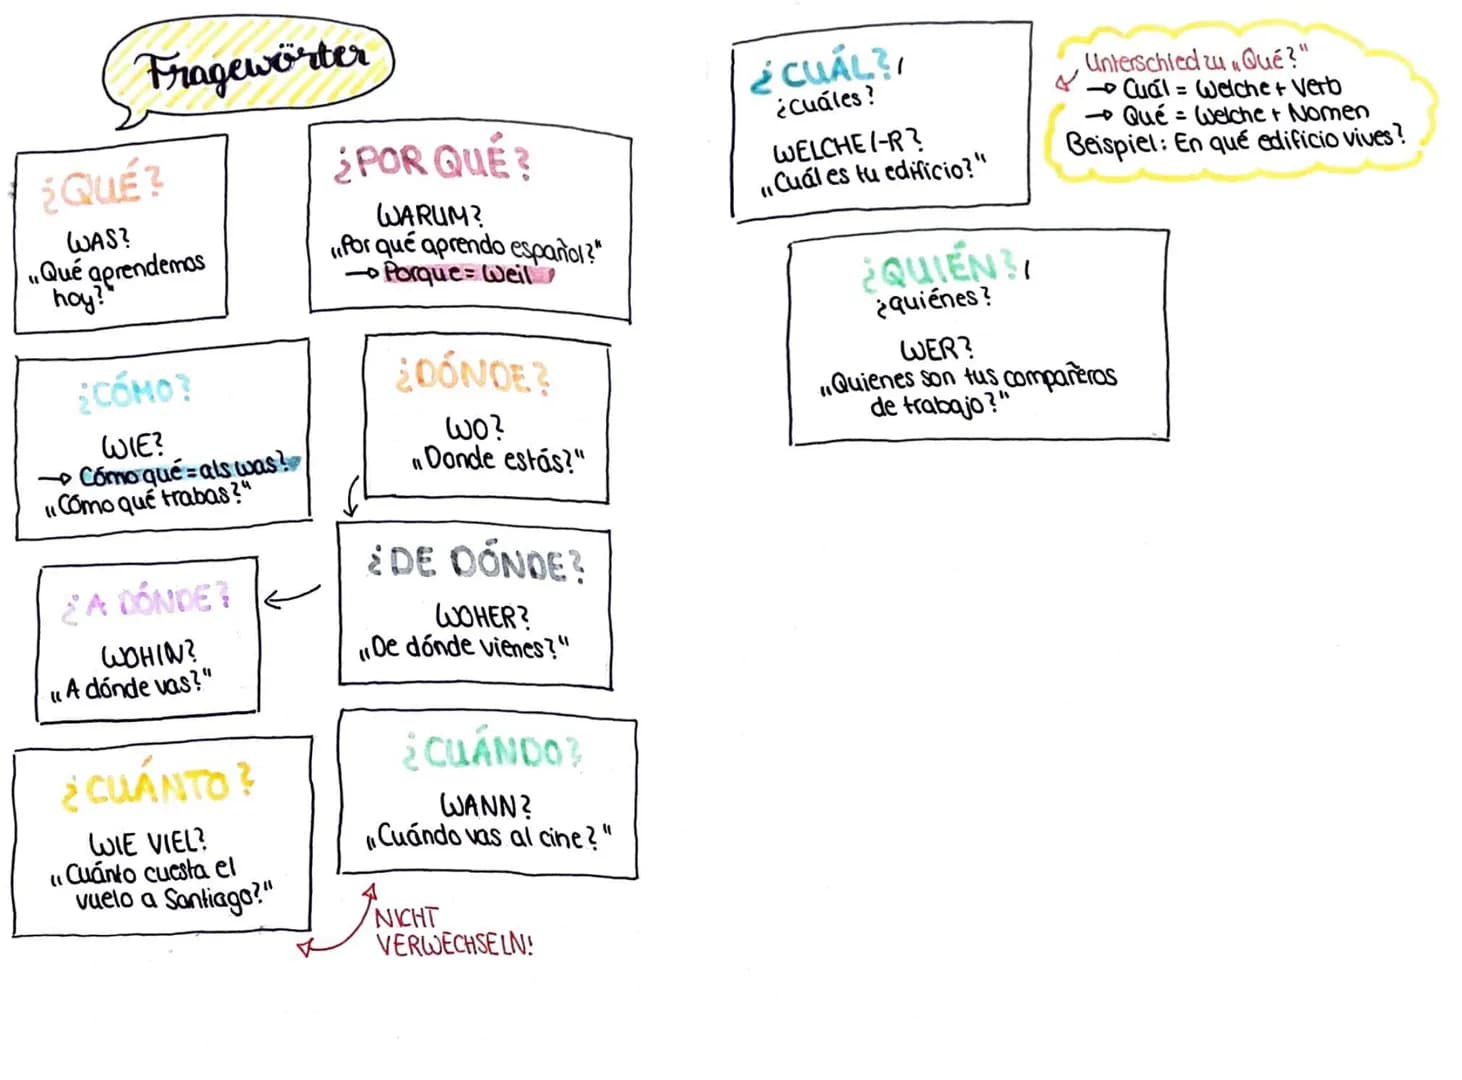 Fragewörter
¿QUÉ?
WAS?
„Qué aprendemos
hoy?"
¿POR QUÉ?
WARUM?
„Por qué aprendo español?"
→ Porque = Weil
¿CÓMO?
WIE?
→ Cómo qué = als was?
„Cómo qué trabas?"
¿DÓNDE?
WO?
„Donde estás?"
¿A DÓNDE?
WOHIN?
„A dónde vas?"
¿DE DÓNDE?
WOHER?
„De dónde vienes?"
¿CUÁNTO?
WIE VIEL?
„Cuánto cuesta el
vuelo a Santiago?"
¿CUÁNDO?
WANN?
„Cuándo vas al cine?"
NICHT
VERWECHSELN!
¿CUÁL?,
¿cuáles?
WELCHE/-R?
„Cuál es tu edificio?"
Unterschied zu „Qué?"
→ Cuál = Welche + Verb
→ Qué = Welche + Nomen
Beispiel: En qué edificio vives?
¿QUIÉN?,
¿quiénes?
WER?
„Quienes son tus compañeros
de trabajo?"